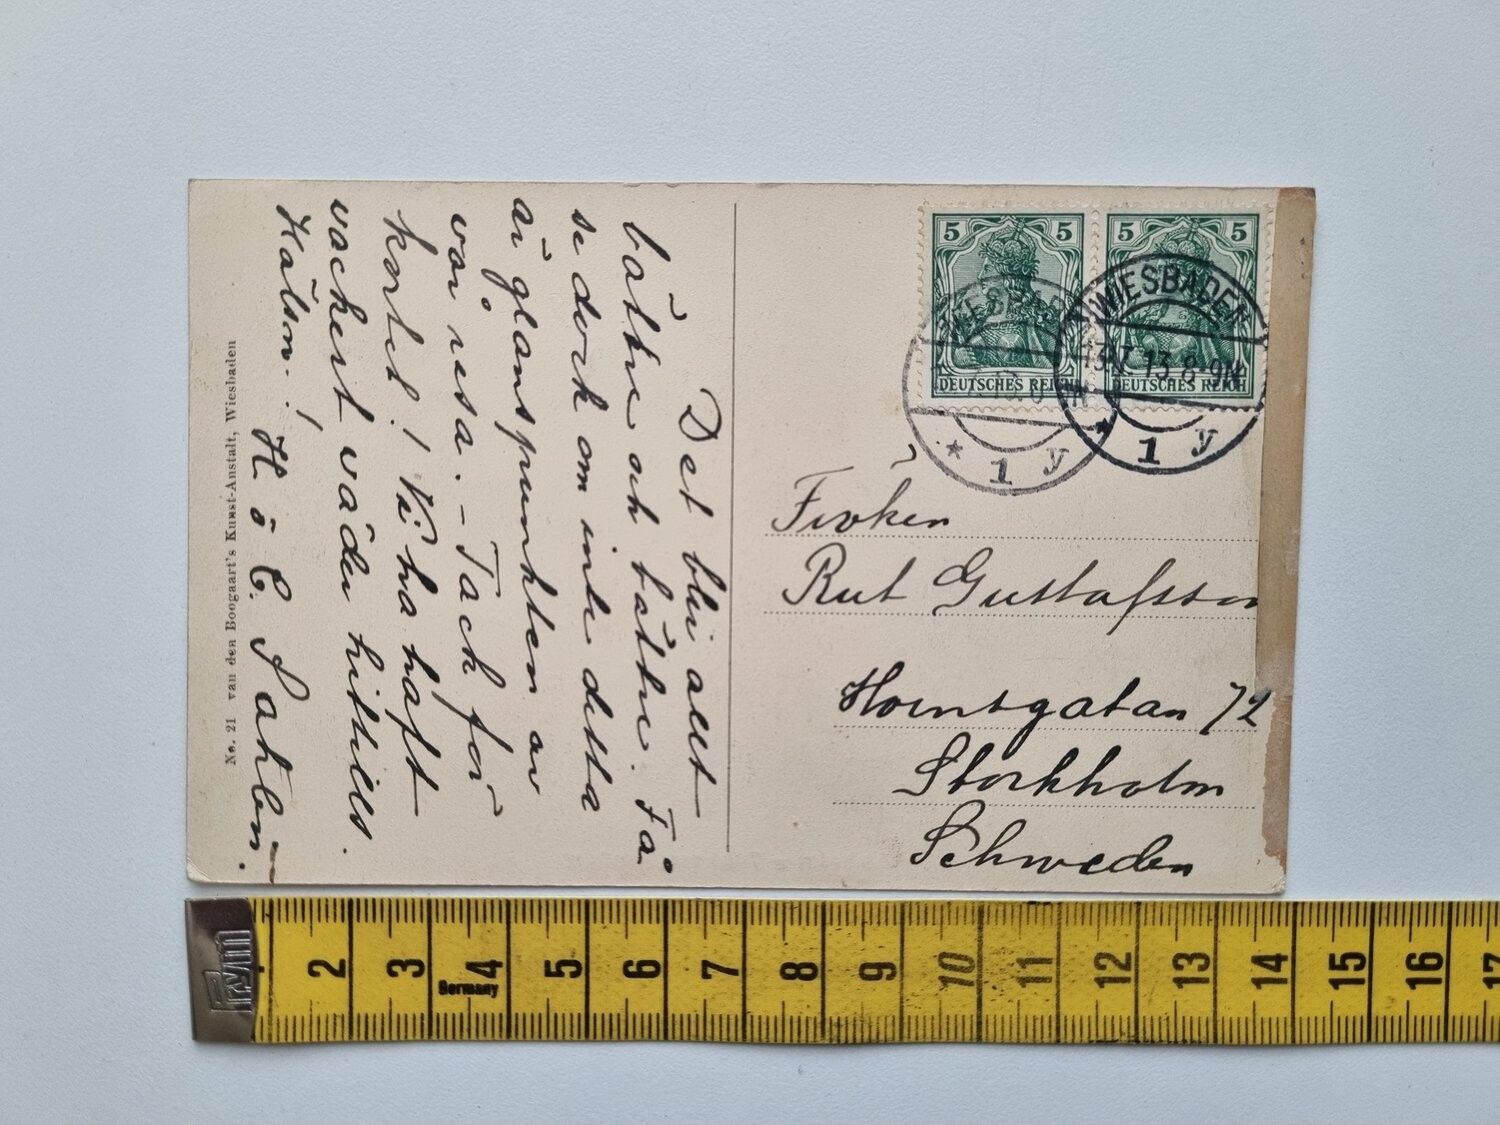 Det blir allt
bättre och bättre. Få
se dock om inte detta
är glanspunkten av
vår resa. - Tack för
kortet! Vi ha haft
vackert väder hittills.
Hälsn.! H o E. Sahlén.
No. 21 van den Boogaart's Kunst-Anstalt, Wiesbaden
5 5
DEUTSCHES REICH
5 5
DEUTSCHES REICH
WIESBADEN
* 1 y
WIESBADEN
13 8-9N
* 1 y
Fröken
Rut Gustafsson
Hornsgatan 72
Stockholm
Schweden
Prym
2 3 4 5 6 7 8 9 10 11 12 13 14 15 16 17
Germany